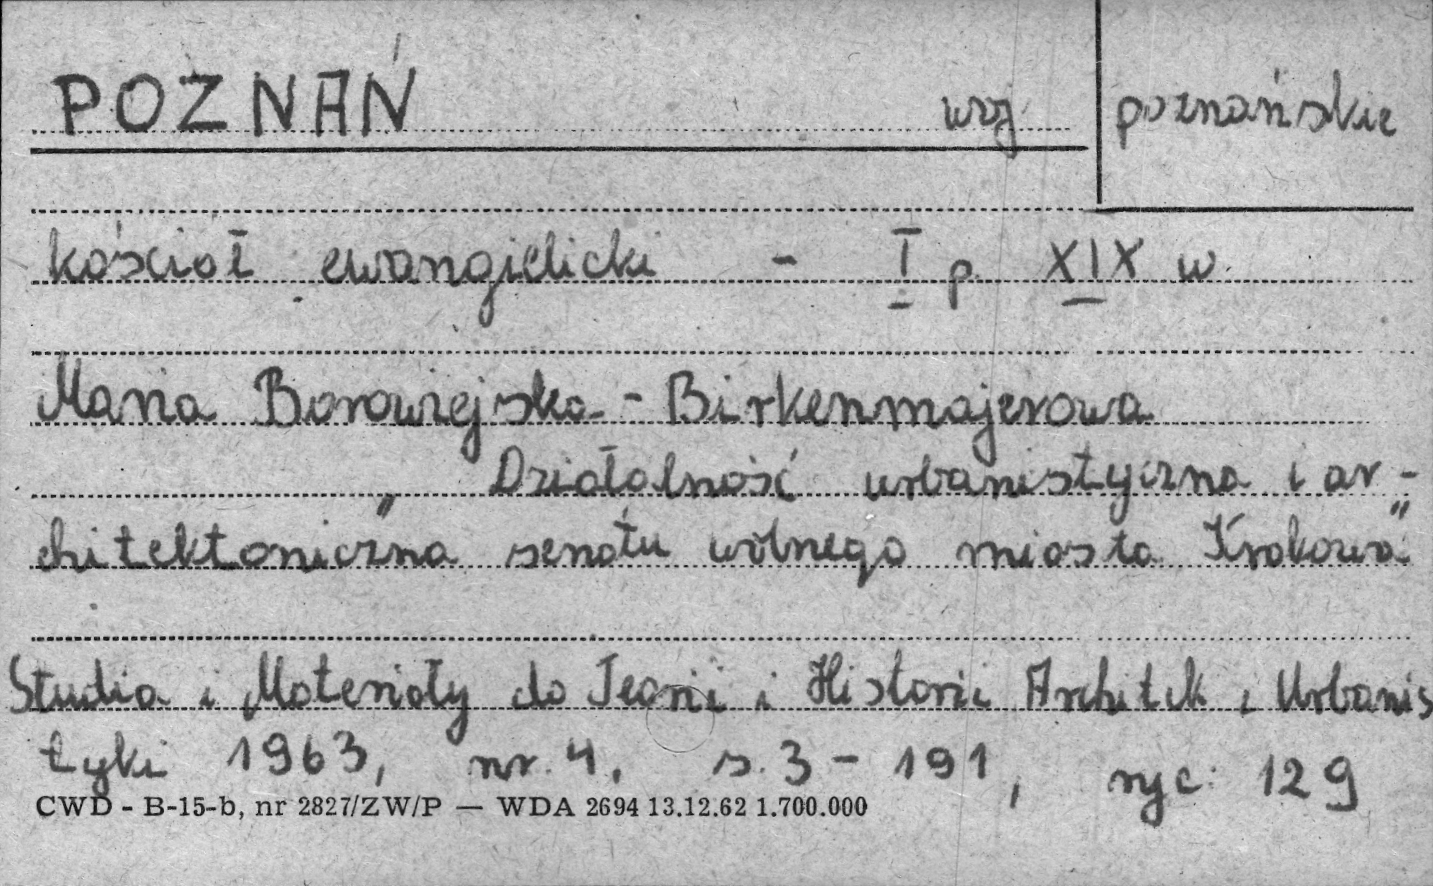 POZNAŃ woj. poznańskie
kościół ewangielicki - I p. XIX w.
Maria Borowiejska - Birkenmajerowa
„Działalność urbanistyczna i ar-
chitektoniczna senatu wolnego miasta Krakowa”
Studia i Materiały do Teorii i Historii Architek i Urbanis
tyki 1963, nr. 4, s. 3 - 191, ryc. 129
CWD - B-15-b, nr 2827/ZW/P — WDA 2694 13.12.62 1.700.000